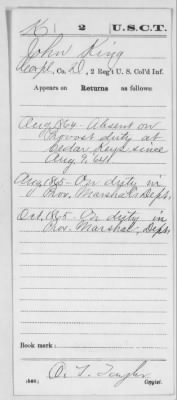 K | 2 | U.S.C.T.
John King
Corpl, Co. D, 2 Reg't U. S. Col'd Inf.
Appears on Returns as follows:
Aug 1864 - Absent on
Provost duty at
Cedar Keys since
Aug. 9, 64
Aug 1865 - On duty in
Prov. Marshal's Dept.
Oct. 1865 - On duty in
Prov. Marshal, Dept.
Book mark:
Copyist.